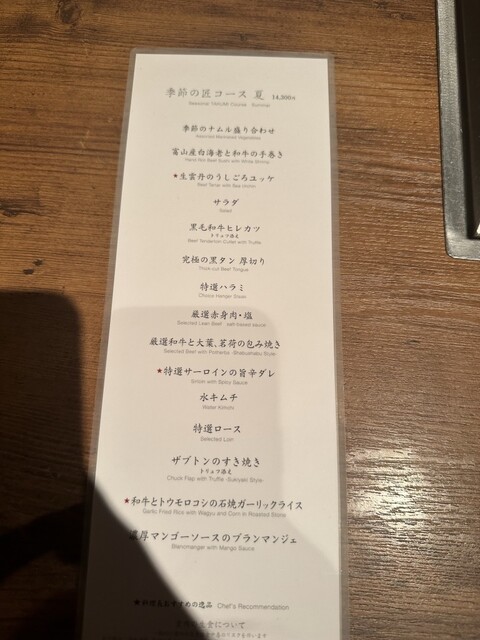 季節の匠コース 夏 14,300円
Seasonal TAKUMI Course Summer
季節のナムル盛り合わせ
Assorted Marinated Vegetables
富山産白海老と和牛の手巻き
Hand Roll Beef Sushi with White Shrimp
★生雲丹のうしごろユッケ
Beef Tartar with Sea Urchin
サラダ
Salad
黒毛和牛ヒレカツ
トリュフ添え
Beef Tenderloin Cutlet with Truffle
究極の黒タン 厚切り
Thick-cut Beef Tongue
特選ハラミ
Choice Hanger Steak
厳選赤身肉・塩
Selected Lean Beef -salt-based sauce-
厳選和牛と大葉、茗荷の包み焼き
Selected Beef with Potherbs -Shabushabu Style-
★特選サーロインの旨辛ダレ
Sirloin with Spicy Sauce
水キムチ
Water Kimchi
特選ロース
Selected Loin
ザブトンのすき焼き
トリュフ添え
Chuck Flap with Truffle -Sukiyaki Style-
★和牛とトウモロコシの石焼ガーリックライス
Garlic Fried Rice with Wagyu and Corn in Roasted Stone
濃厚マンゴーソースのブランマンジェ
Blancmanger with Mango Sauce
★料理長おすすめの逸品 Chef's Recommendation
生食について